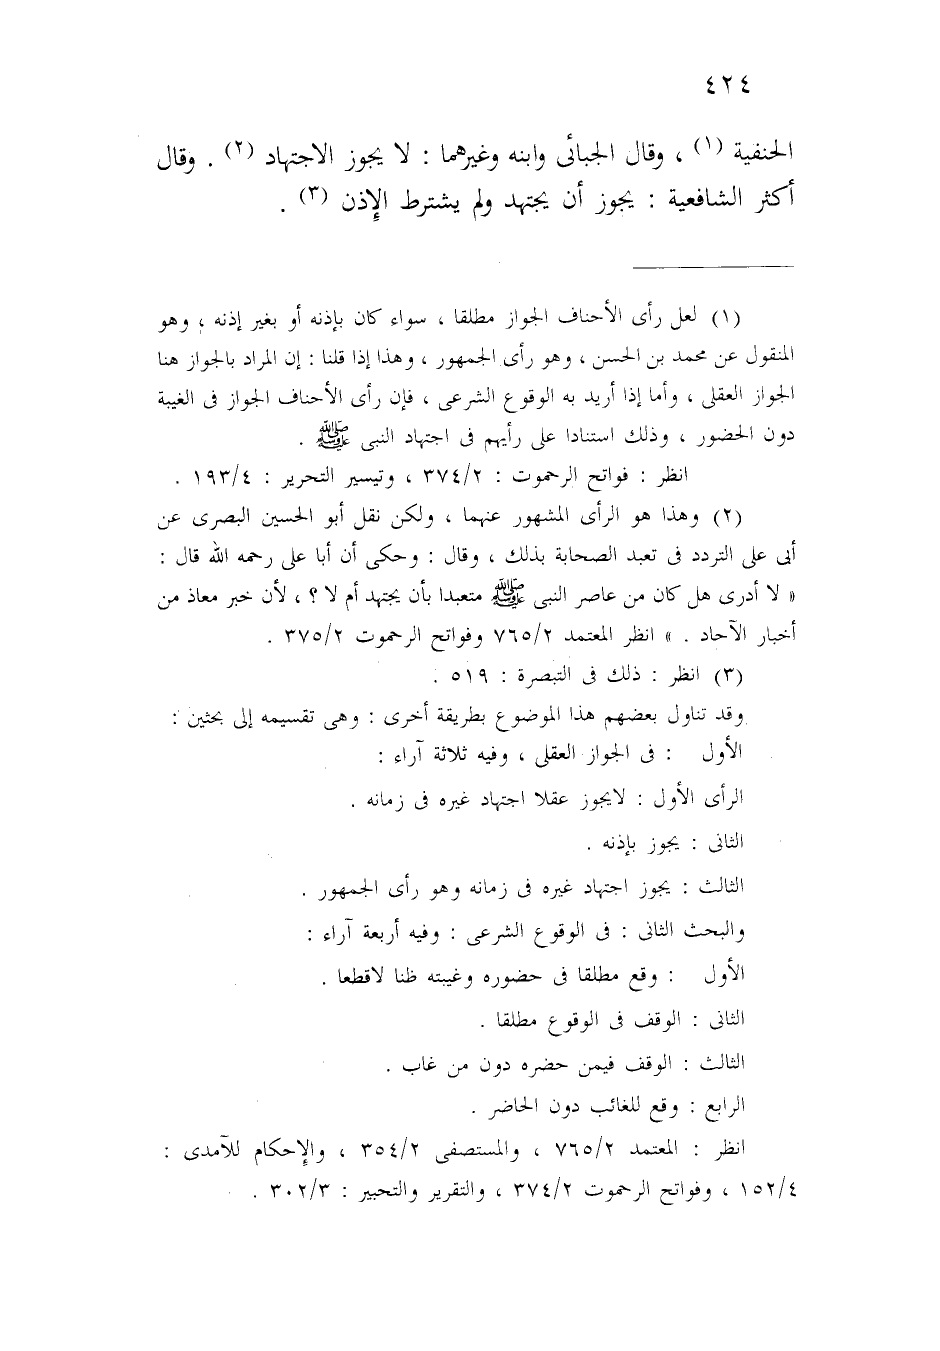 ٤٢٤
الحنفية (١) ، وقال الجبائى وابنه وغيرهما : لا يجوز الاجتهاد (٢) . وقال
أكثر الشافعية : يجوز أن يجتهد ولم يشترط الإذن (٣) .
(١) لعل رأى الأحناف الجواز مطلقا ، سواء كان بإذنه أو بغير إذنه ، وهو
المنقول عن محمد بن الحسن ، وهو رأى الجمهور ، وهذا إذا قلنا : إن المراد بالجواز هنا
الجواز العقلى ، وأما إذا أريد به الوقوع الشرعى ، فإن رأى الأحناف الجواز فى الغيبة
دون الحضور ، وذلك استنادا على رأيهم فى اجتهاد النبى ﷺ .
انظر : فواتح الرحموت : ٣٧٤/٢ ، وتيسير التحرير : ١٩٣/٤ .
(٢) وهذا هو الرأى المشهور عنهما ، ولكن نقل أبو الحسين البصرى عن
أبى على التردد فى تعبد الصحابة بذلك ، وقال : وحكى أن أبا على رحمه الله قال :
« لا أدرى هل كان من عاصر النبى ﷺ متعبدا بأن يجتهد أم لا ؟ ، لأن خبر معاذ من
أخبار الآحاد . » انظر المعتمد ٧٦٥/٢ وفواتح الرحموت ٣٧٥/٢ .
(٣) انظر : ذلك فى التبصرة : ٥١٩ .
وقد تناول بعضهم هذا الموضوع بطريقة أخرى : وهى تقسيمه إلى بحثين :
الأول : فى الجواز العقلى ، وفيه ثلاثة آراء :
الرأى الأول : لايجوز عقلا اجتهاد غيره فى زمانه .
الثانى : يجوز بإذنه .
الثالث : يجوز اجتهاد غيره فى زمانه وهو رأى الجمهور .
والبحث الثانى : فى الوقوع الشرعى : وفيه أربعة آراء :
الأول : وقع مطلقا فى حضوره وغيبته ظنا لاقطعا .
الثانى : الوقف فى الوقوع مطلقا .
الثالث : الوقف فيمن حضره دون من غاب .
الرابع : وقع للغائب دون الحاضر .
انظر : المعتمد ٧٦٥/٢ ، والمستصفى ٣٥٤/٢ ، والإحكام للآمدى :
١٥٢/٤ ، وفواتح الرحموت ٣٧٤/٢ ، والتقرير والتحبير : ٣٠٢/٣ .